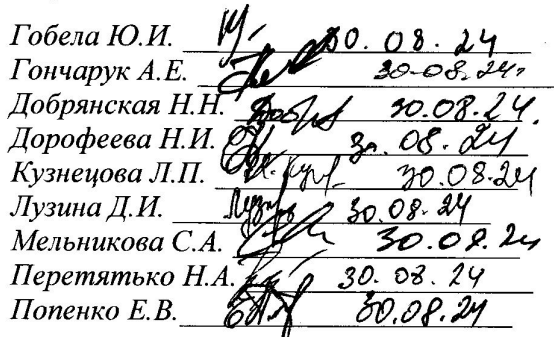 Гобела Ю.И. 30.08.24
Гончарук А.Е. 30.08.24г
Добрянская Н.Н. 30.08.24.
Дорофеева Н.И. 30.08.24
Кузнецова Л.П. 30.08.24
Лузина Д.И. 30.08.24
Мельникова С.А. 30.08.24
Перетятько Н.А. 30.08.24
Попенко Е.В. 30.08.24